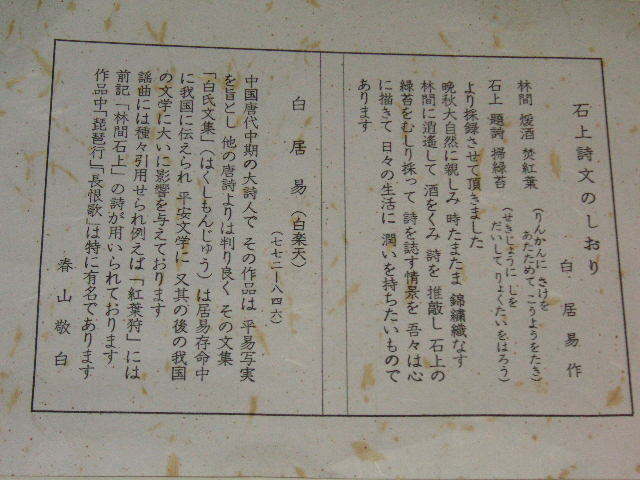 石上詩文のしおり
白居易作
林間 煖酒 焚紅葉
(りんかんに さけを
あたためて こうようをたき)
石上 題詩 掃緑苔
(せきじょうに しを
だいして りょくたいをはろう)
より採録させて頂きました
晩秋大自然に親しみ 時たまたま 錦繍織なす
林間に逍遙して 酒をくみ 詩を 推敲し 石上の
緑苔をむしり採って 詩を誌す情景を 吾々は心
に描きて 日々の生活に 潤いを持ちたいもので
あります
白居易(白楽天)
(七七二ー八四六)
中国唐代中期の大詩人で その作品は 平易写実
を旨とし 他の唐詩よりは判り良く その文集
「白氏文集」(はくしもんじゅう)は居易存命中
に我国に伝えられ 平安文学に 又其の後の我国
の文学に大いに影響を与えております
謡曲には種々引用せられ例えば「紅葉狩」には
前記「林間石上」の詩が用いられております
作品中「琵琶行」「長恨歌」は特に有名であります
春山敬白